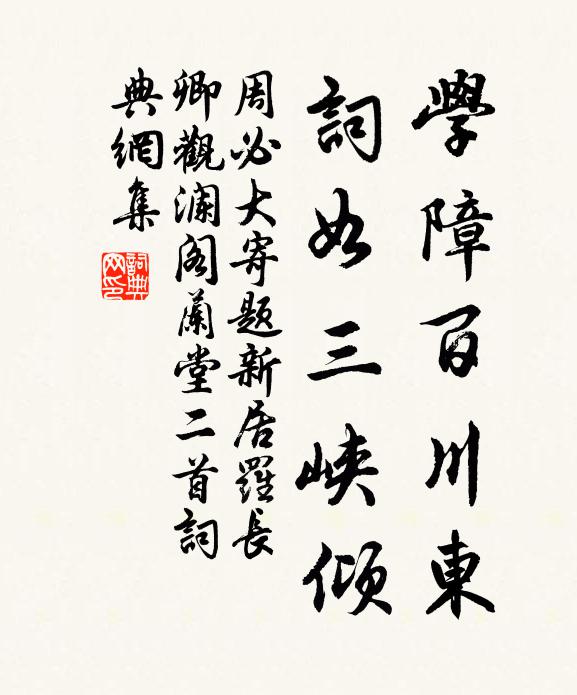 學障百川東
詞如三峽傾
周必大寄題新居羅長
卿觀瀾閣蘭堂二首詞
典網集
詞典网印